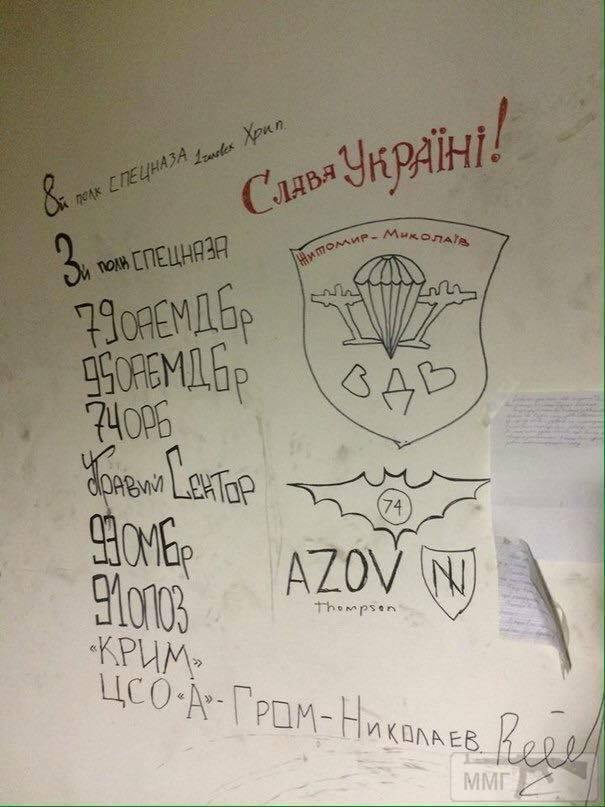 8й полк СПЕЦНАЗА 1 человек Хрип.
Слава Україні!
3й полк СПЕЦНАЗА
Житомир-Миколаїв
79 ОАЕМДБр
95 ОАЕМДБр
ВДВ
74 ОРБ
Правий Сектор
74
93 ОМБр
AZOV
Thompson
91 ОПОЗ
«КРИМ»
ЦСО «А» - ГРОМ - НИКОЛАЕВ.
ММГ